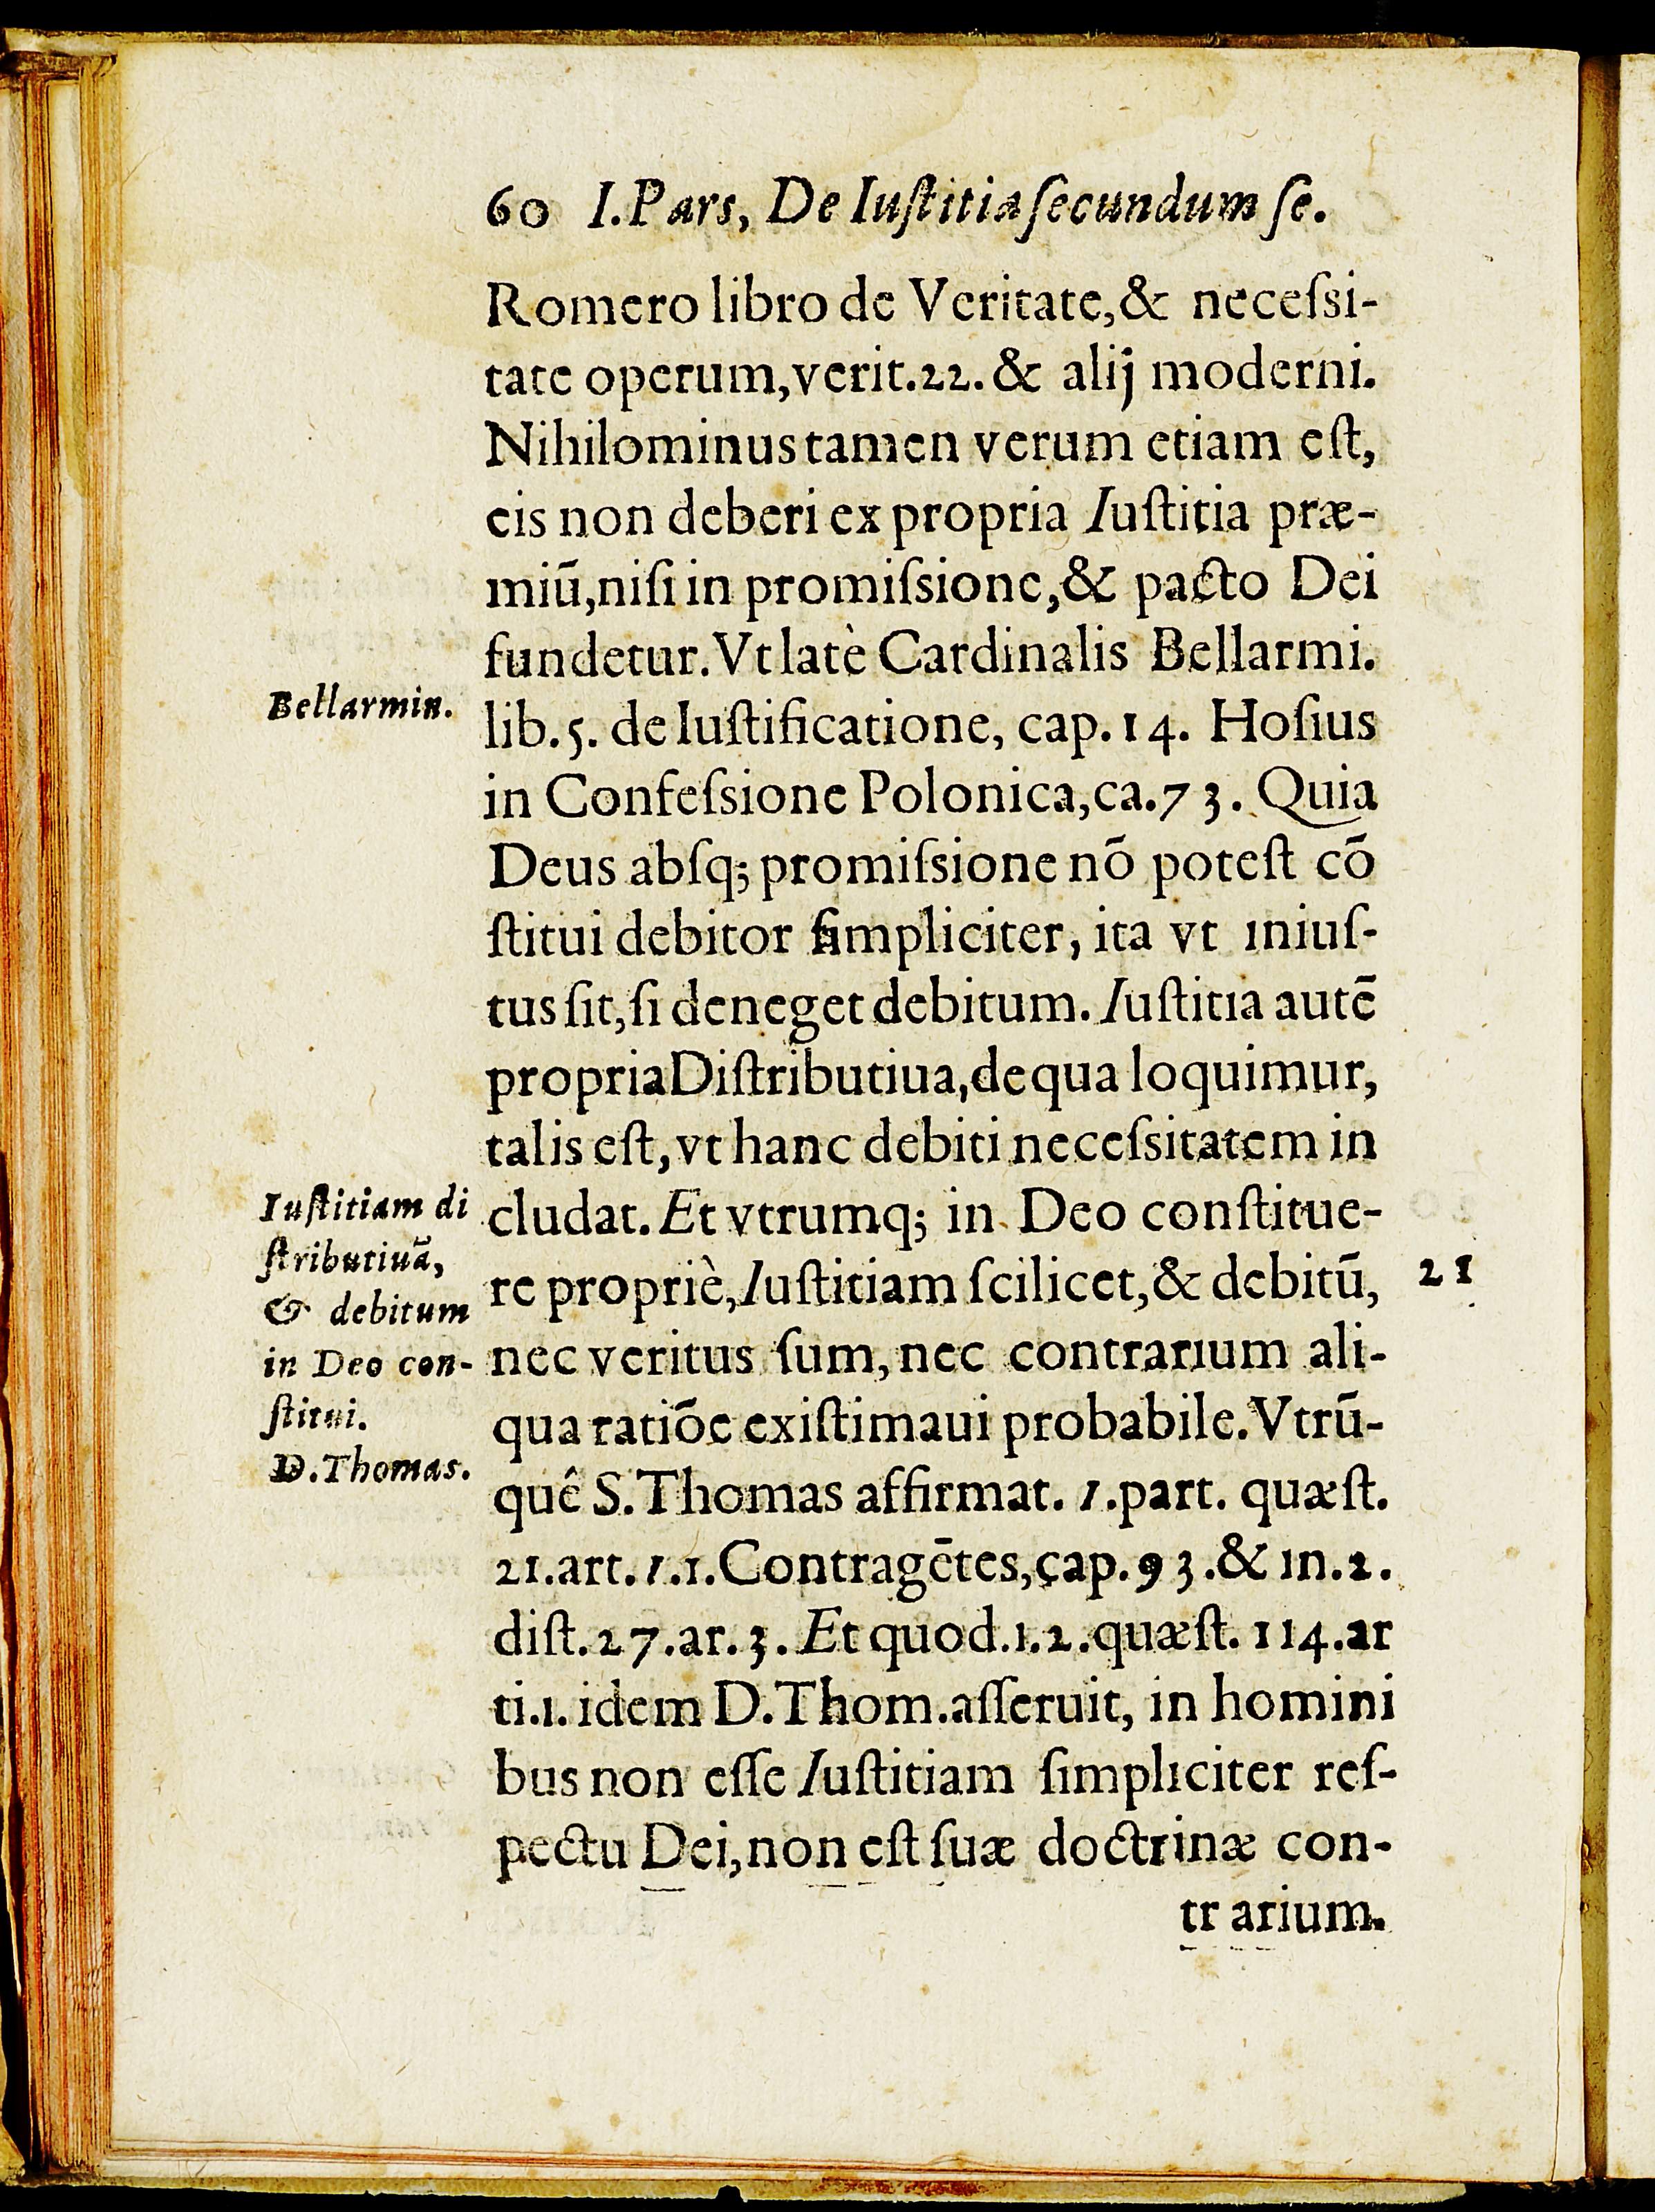 60 I.Pars, De Iuſtitia ſecundum ſe.
Romero libro de Veritate,& neceſsi-
tate operum,verit.22.& alij moderni.
Nihilominus tamen verum etiam eſt,
eis non deberi ex propria Iuſtitia præ-
miū,niſi in promiſsione,& pacto Dei
fundetur.Vt latè Cardinalis Bellarmi.
Bellarmin.
lib.5. de Iuſtificatione, cap.14. Hoſius
in Confeſsione Polonica,ca.73. Quia
Deus abſq; promiſsione nō poteſt cō
ſtitui debitor ſimpliciter, ita vt iniuſ-
tus ſit,ſi deneget debitum. Iuſtitia autē
propria Diſtributiua,de qua loquimur,
talis eſt,vt hanc debiti neceſsitatem in
cludat. Et vtrumq; in Deo conſtitue-
re propriè,Iuſtitiam ſcilicet,& debitū,
21
nec veritus ſum,nec contrarium ali-
qua ratiōe exiſtimaui probabile.Vtrū-
quê S.Thomas affirmat. 1.part. quæſt.
21.art.1.1.Contragētes,çap.93.& in.2.
diſt.27.ar.3. Et quod.1.2.quæſt.114.ar
ti.1. idem D.Thom.aſſeruit, in homini
bus non eſſe Iuſtitiam ſimpliciter reſ-
pectu Dei,non eſt ſuæ doctrinæ con-
tr arium.
Iuſtitiam di
ſtributiuā,
& debitum
in Deo con-
ſtitui.
D.Thomas.